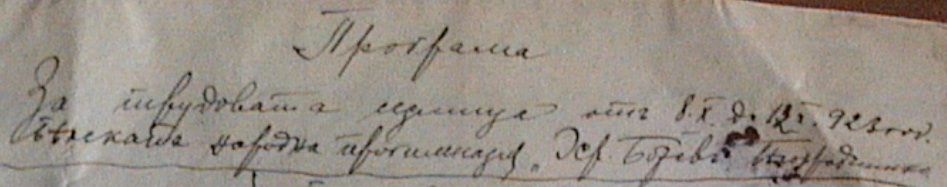 Програма
За трудовата седмица отъ 8.X. до 12.X. 923 год.
народна прогимназия "Хр. Ботевъ"